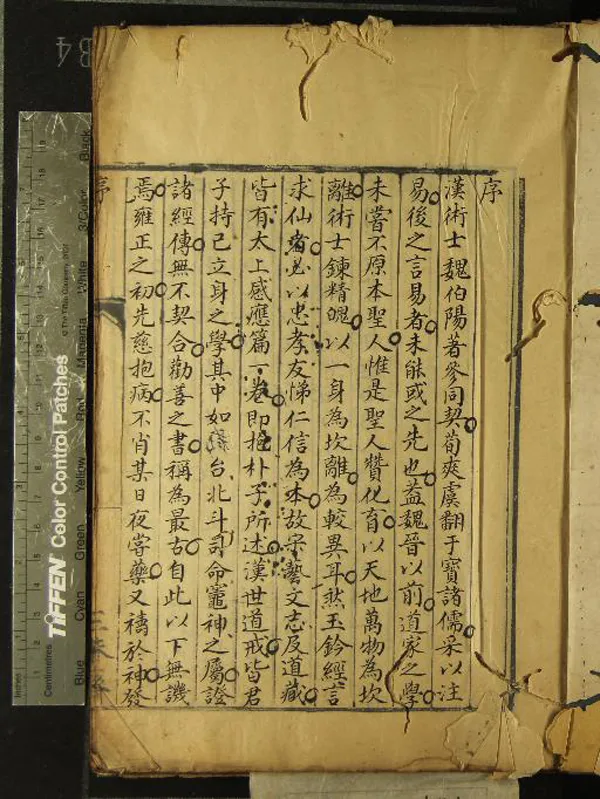 序
漢術士魏伯陽著參同契荀爽虞翻于寶諸儒采以注
易後之言易者未能或之先也葢魏晉以前道家之學
未嘗不原本聖人惟是聖人贊化育以天地萬物為坎
離術士鍊精魄以一身為坎離為較異耳然玉鈐經言
求仙者必以忠孝友悌仁信為本故宋藝文志及道藏
皆有太上感應篇一卷即抱朴子所述漢世道戒皆君
子持己立身之學其中如台北斗司命竈神之屬證
諸經傳無不契合勸善之書稱為最古自此以下無譏
焉雍正之初先慈抱病不肖某日夜嘗藥又禱於神發
序
TIFFEN Color Control Patches
© The Tiffen Company, 2007
Inches
Centimetres
Blue Cyan Green Yellow Red Magenta White 3/Color Black
B4